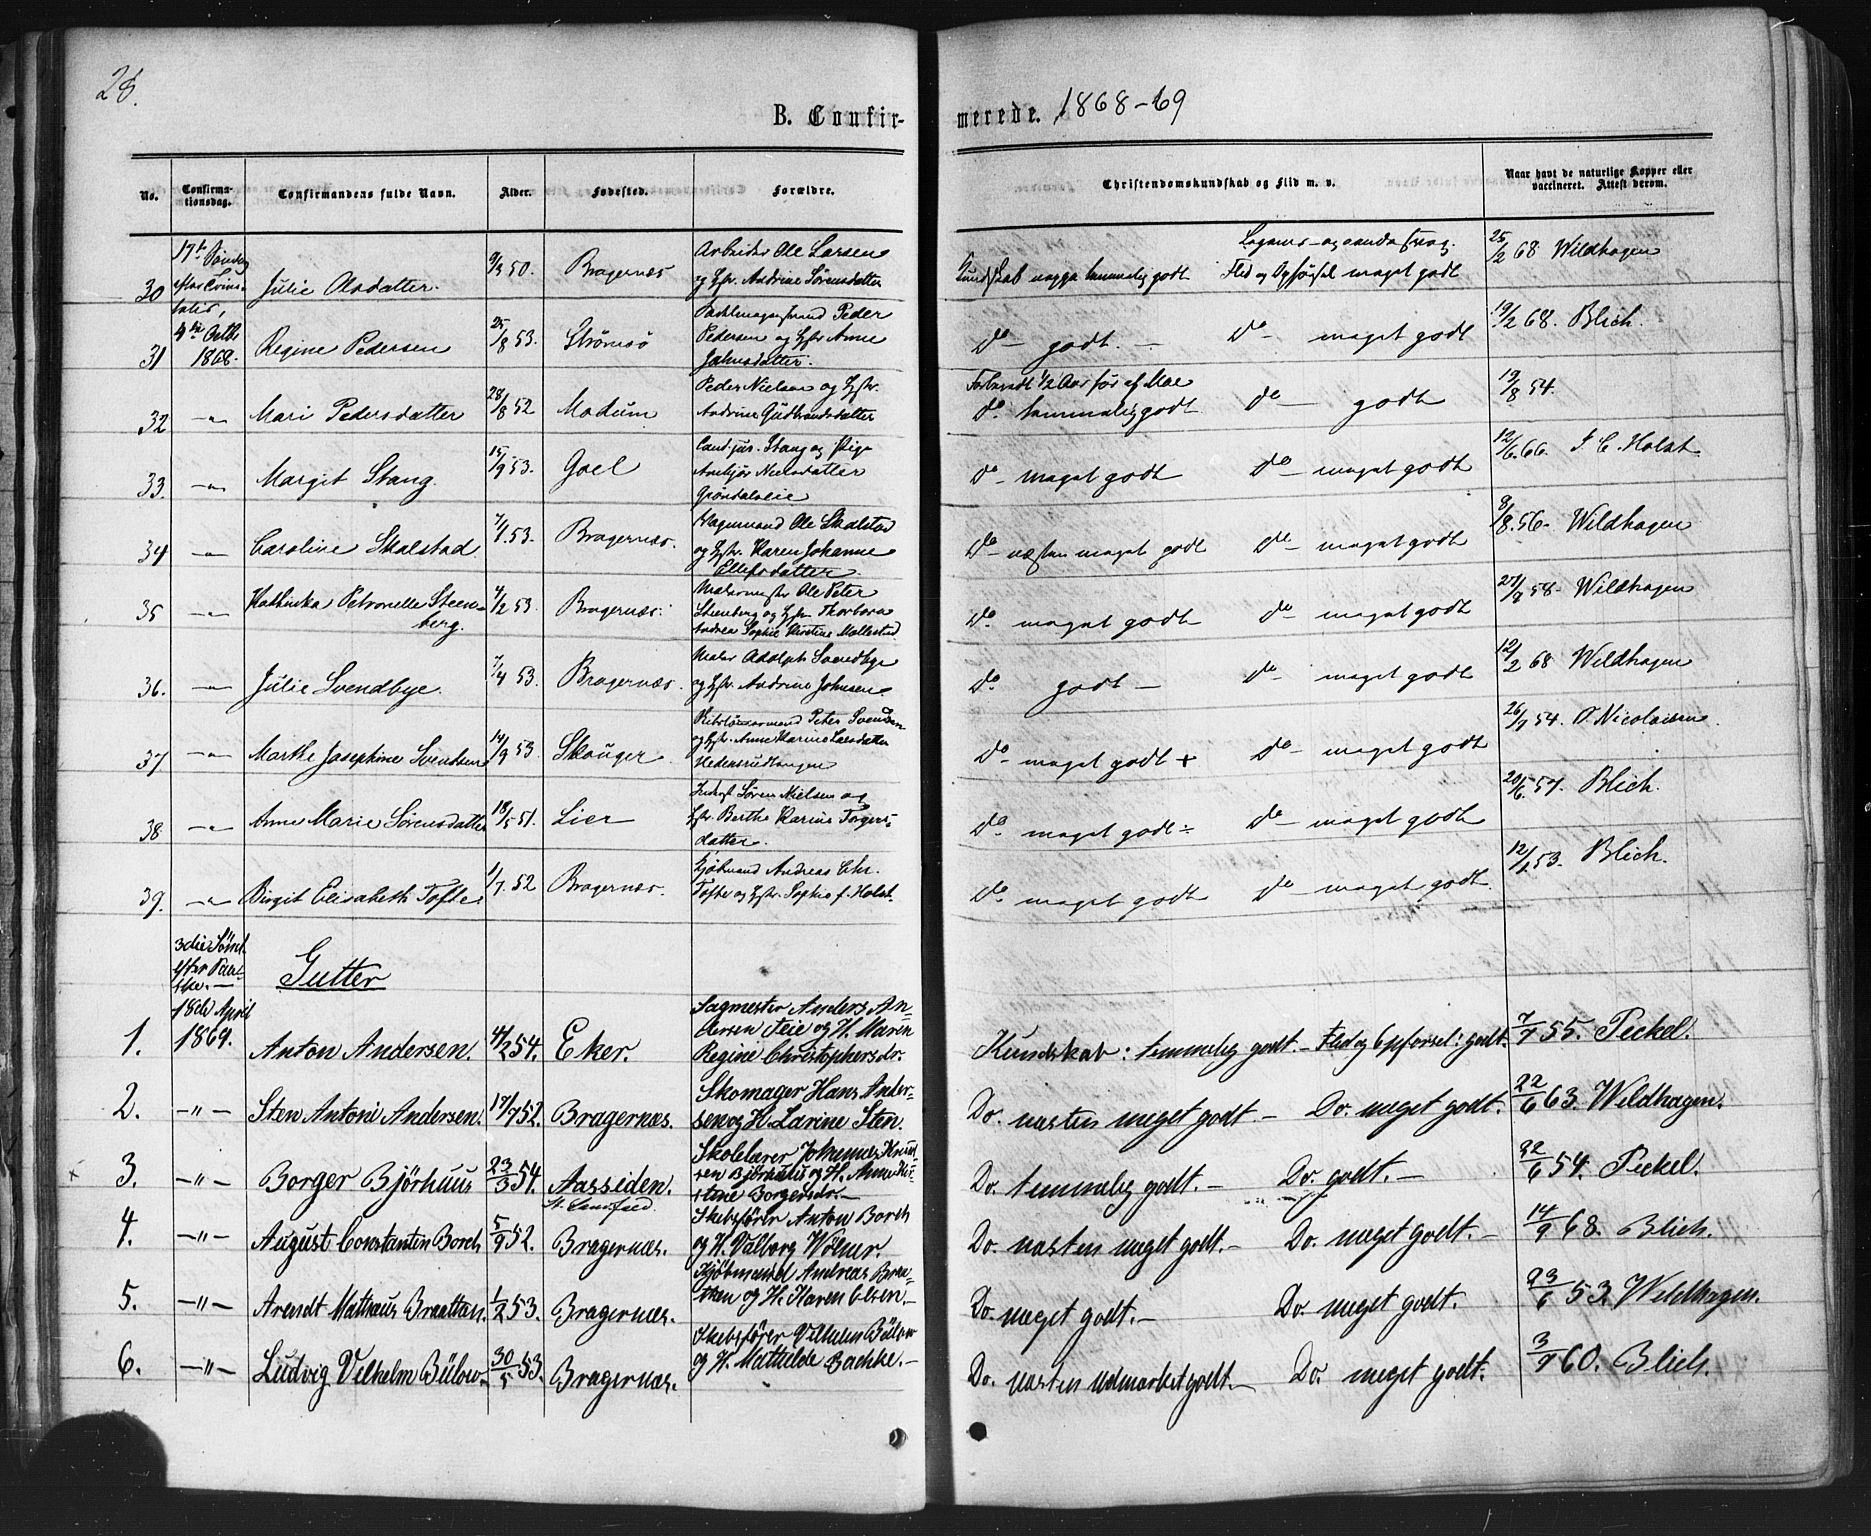 28.
B. Confir-
merede. 1868-69
No. Confirma-tionsdag. Confirmandens fulde Navn. Alder. Fødested. Forældre. Christendomskundskab og Flid m. v. Naar havt de naturlige Kopper eller vaccineret. Attest derom.
17de Søndag
efter Trini-
tatis,
4de Octbr
1868.
30 Julie Olsdatter. 9/3 50. Bragernæs
Arbeider Ole Larsen
og Hstr. Andrine Sørensdatter
Kundskab tammelig godt Flid og Opførsel maget godt 25/2 68 Wildhagen
31 Regine Pedersen 25/8 53. Strømsø
Peder
Pedersen og Hstr Anne
Johnsdatter.
Do godt. — Do — maget godt 19/2 68. Blich.
32 —"— Mari Pedersdatter 28/8 52 Modum
Peder Nielsen og Hstr.
Andrine Gudbrandsdatter
Do tammelig godt Do — godt 19/8 54.
33. —"— Margit Stang. 15/9 53. Goel
Cand. jur. Stang og Pige
Nielsdatter
Do — maget godt Do — maget godt 12/6 66. J. C. Holst
34 —"— Caroline Skalstad 7/1 53. Bragernæs.
Ole Skalstad
og Hstr. Karen Johanne
Ellefsdatter
Do — næsten maget godt Do — maget godt 9/8 56- Wildhagen
35 —"— Kathinka Petronelle Steen-
berg. 4/2 53. Bragernæs.
Malermester Ole Peter
Steenberg og Hstr Thorbora
Andrea Sophie Kirstine Mollestad
Do. maget godt Do — maget godt 27/8 58- Wildhagen
36. —"— Julie Svendbye. 7/4 53. Bragernæs.
Maler Adolph Svendbye
og Hstr. Andrine Johnsen.
Do. godt — Do — maget godt 12/2 68 Wildhagen
37. —"— Marthe Josephine Svendsen 14/9 53. Skouger
Peter Svendsen
og Hstr. Anne Karine Larsdatter
Do — maget godt + Do — maget godt 26/7 54. O. Nicolaisen.
38. —"— Anne Marie Sørensdatter 18/5 51. Lier
Inderst Søren Nielsen og
Hstr. Berthe Karine Torgers-
datter.
Do. maget godt ÷ Do — maget godt 20/6 57. Blich.
39. —"— Birgit Elisabeth Tofte 1/7 52 Bragernæs.
Kjøbmand Andreas Chr.
Tofte og Hstr. Sophie f. Holst.
Do. maget godt Do — maget godt 12/1 53. Blich.
3die Sønd.
efter Paa-
ske. —
18de April
1869.
Gutter
1. Anton Andersen. 4/2 54. Eker.
Sagmester Anders An-
dersen Teie og H. Maren
Regine Christophersdr.
Kundskab: temmelig godt. — Flid og Opførsel: godt. 7/7 55. Peckel.
2. —"— Sten Antoni Andersen. 17/7 52. Bragernæs.
Skomager Hans Ander-
sen og H. Larine Sten.
Do. næsten meget godt. — Do. meget godt. 22/6 63. Wildhagen.
3. —"— Borger Bjørhuus 23/3 54. Aassiden.
Skolelærer Johannes Knud-
sen Bjørhuus og H. Anne Kir-
stine Borgersdr. —
Do. temmelig godt. — Do. godt. — 22/6 54. Peckel.
4. —"— August Constantin Borch 5/9 52. Bragernæs.
Skibsfører Anton Borch
og H. Valborg Wølner.
Do. næsten meget godt. — Do. meget godt. — 14/9 68. Blich.
5. —"— Arendt Mathæus Braatten. 1/2 53. Bragernæs.
Kjøbmand Andreas Braa-
tten og H. Karen Olsen. —
Do. meget godt. — Do. meget godt. 23/6 53 Wildhagen.
6. —"— Ludvig Vilhelm Bülow. 30/5 53. Bragernæs.
Skibsfører Vilhelm Bülow
og H. Mathilde Bachke. —
Do. næsten udmærket godt. — Do. meget godt. 3/7 60. Blich.